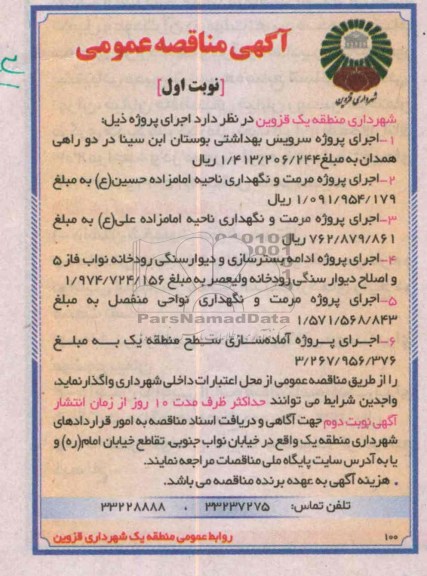 آگهی مناقصه عمومی
[نوبت اول]
شهرداری قزوین
شهرداری منطقه یک قزوین در نظر دارد اجرای پروژه ذیل:
۱-اجرای پروژه سرویس بهداشتی بوستان ابن سینا در دو راهی
همدان به مبلغ ۱/۴۱۳/۲۰۶/۲۴۴ ریال
۲-اجرای پروژه مرمت و نگهداری ناحیه امامزاده حسین(ع) به مبلغ
۱/۰۹۱/۹۵۴/۱۷۹ ریال
۳-اجرای پروژه مرمت و نگهداری ناحیه امامزاده علی(ع) به مبلغ
۷۶۲/۸۷۹/۸۶۱ ریال
۴-اجرای پروژه ادامه بسترسازی و دیوارسنگی رودخانه نواب فاز ۵
و اصلاح دیوار سنگی رودخانه ولیعصر به مبلغ ۱/۹۷۴/۷۲۴/۱۵۶
۵-اجرای پروژه مرمت و نگهداری نواحی منفصل به مبلغ
۱/۵۷۱/۵۶۸/۸۴۳
ParsNamadData
۶-اجرای پروژه آماده‌سازی سطح منطقه یک به مبلغ
۳/۲۶۷/۹۵۶/۳۷۶
را از طریق مناقصه عمومی از محل اعتبارات داخلی شهرداری واگذار نماید،
واجدین شرایط می توانند حداکثر ظرف مدت ۱۰ روز از زمان انتشار
آگهی نوبت دوم جهت آگاهی و دریافت اسناد مناقصه به امور قراردادهای
شهرداری منطقه یک واقع در خیابان نواب جنوبی، تقاطع خیابان امام(ره) و
یا به آدرس سایت پایگاه ملی مناقصات مراجعه نمایند.
. هزینه آگهی به عهده برنده مناقصه می باشد.
تلفن تماس: ۳۳۲۳۷۲۷۵ . ۳۳۲۲۸۸۸۸
روابط عمومی منطقه یک شهرداری قزوین
۱۰۰